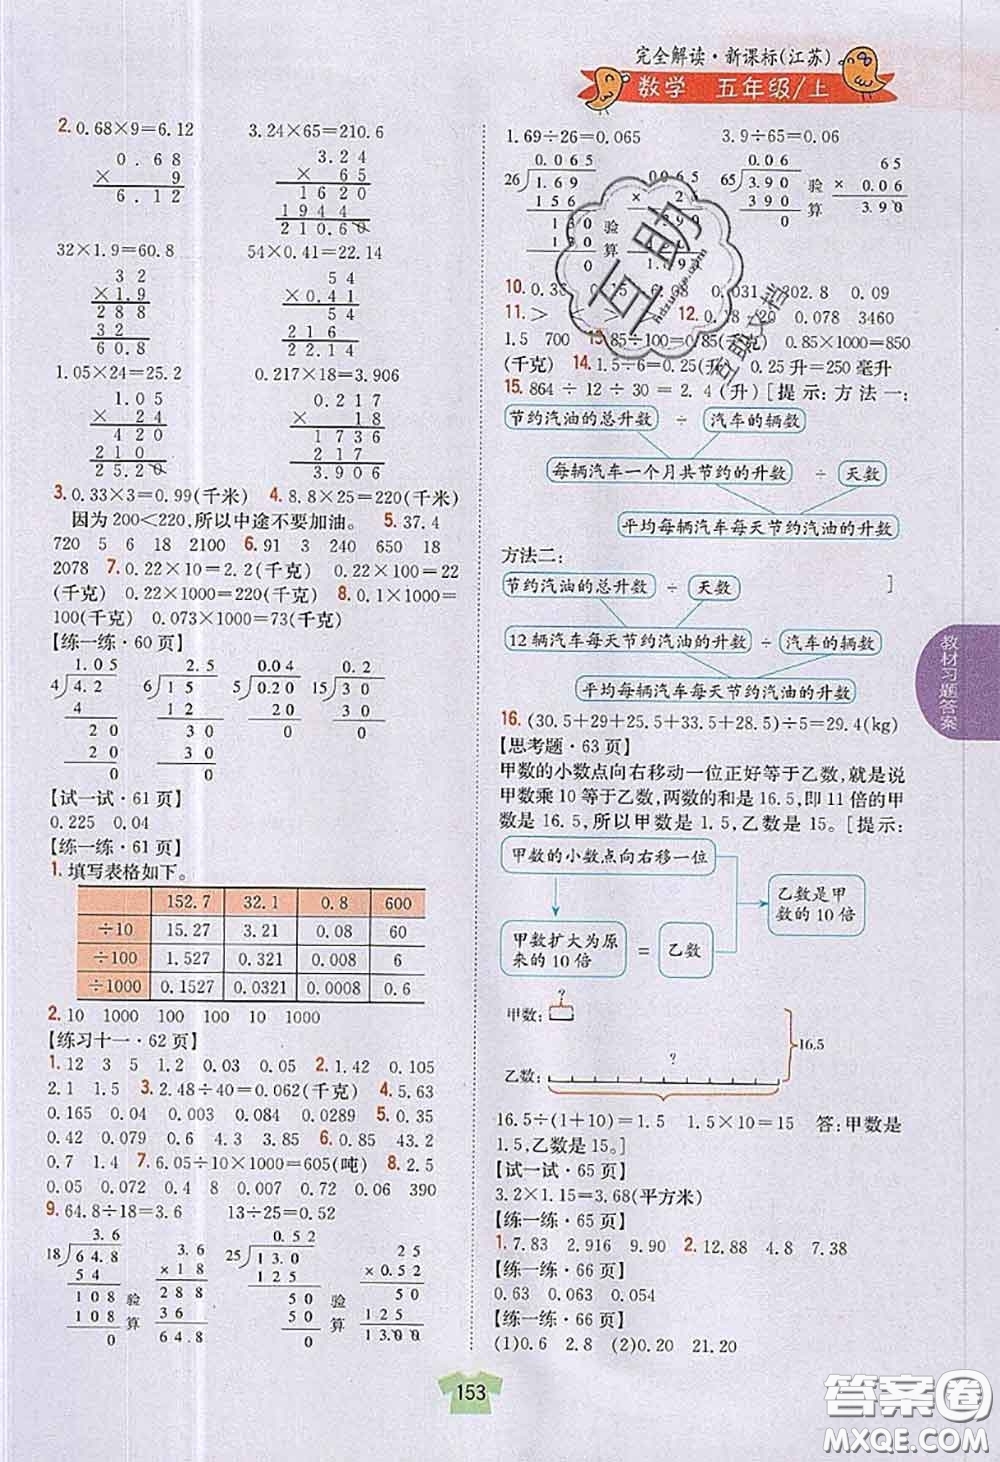 完全解读·新课标(江苏)
数学 五年级/上
2. 0.68×9=6.12 3.24×65=210.6
0.68
× 9
6.12
3.24
× 65
1620
1944
210.60
32×1.9=60.8 54×0.41=22.14
32
×1.9
288
32
60.8
54
×0.41
54
216
22.14
1.05×24=25.2 0.217×18=3.906
1.05
× 24
420
210
25.20
0.217
× 18
1736
217
3.906
3. 0.33×3=0.99(千米) 4. 8.8×25=220(千米)
因为200<220,所以中途不要加油。 5. 37.4
720 5 6 18 2100 6. 91 3 240 650 18
2078 7. 0.22×10=2.2(千克) 0.22×100=22
(千克) 0.22×1000=220(千克) 8. 0.1×1000=
100(千克) 0.073×1000=73(千克)
【练一练·60页】
1.05
4 4.2
4
20
20
0
2.5
6 15
12
30
30
0
0.04
5 0.20
20
0
0.2
15 30
30
0
【试一试·61页】
0.225 0.04
【练一练·61页】
1. 填写表格如下。
152.7 32.1 0.8 600
÷10 15.27 3.21 0.08 60
÷100 1.527 0.321 0.008 6
÷1000 0.1527 0.0321 0.0008 0.6
2. 10 1000 100 100 10 1000
【练习十一·62页】
1. 12 3 5 1.2 0.03 0.05 2. 1.42 0.105
2.1 1.5 3. 2.48÷40=0.062(千克) 4. 5.63
0.165 0.04 0.094 0.084 0.0289 5. 0.35
0.42 0.079 0.6 4.3 3.85 6. 0.85 43.2
0.7 1.4 7. 6.05÷10×1000=605(吨) 8. 2.5
0.05 0.072 0.4 8 0.02 0.02 0.06 390
9. 64.8÷18=3.6 13÷25=0.52
3.6
18 64.8
54
108
108
0
验算
3.6
×18
288
36
64.8
0.52
25 130
125
50
50
0
验算
25
×0.52
50
125
13.00
1.69÷26=0.065 3.9÷65=0.06
0.065
26 1.69
156
130
130
0
验算
0.06
65 3.90
390
0
验算
65
×0.06
3.90
10. 302.8 0.09
11. > 12. 0.078 3460
1.5 700 0.85×1000=850
(千克) 14. 1.5÷6=0.25(升) 0.25升=250毫升
15. 864÷12÷30=2.4(升)[提示:方法一:
节约汽油的总升数 ÷ 汽车的辆数
每辆汽车一个月共节约的升数 ÷ 天数
平均每辆汽车每天节约汽油的升数
方法二:
节约汽油的总升数 ÷ 天数 ]
12辆汽车每天节约汽油的升数 ÷ 汽车的辆数
平均每辆汽车每天节约汽油的升数
16. (30.5+29+25.5+33.5+28.5)÷5=29.4(kg)
【思考题·63页】
甲数的小数点向右移动一位正好等于乙数,就是说
甲数乘10等于乙数,两数的和是16.5,即11倍的甲
数是16.5,所以甲数是1.5,乙数是15。[提示:
甲数的小数点向右移一位
乙数是甲
数的10倍
甲数扩大为原
来的10倍 = 乙数
?
甲数:
16.5
?
乙数:
16.5÷(1+10)=1.5 1.5×10=15 答:甲数是
1.5,乙数是15。]
【试一试·65页】
3.2×1.15=3.68(平方米)
【练一练·65页】
1. 7.83 2.916 9.90 2. 12.88 4.8 7.38
【练一练·66页】
0.63 0.063 0.054
【练一练·66页】
(1)0.6 2.8 (2)0.20 21.20
教材习题答案
153
答案圈
MXQE.COM